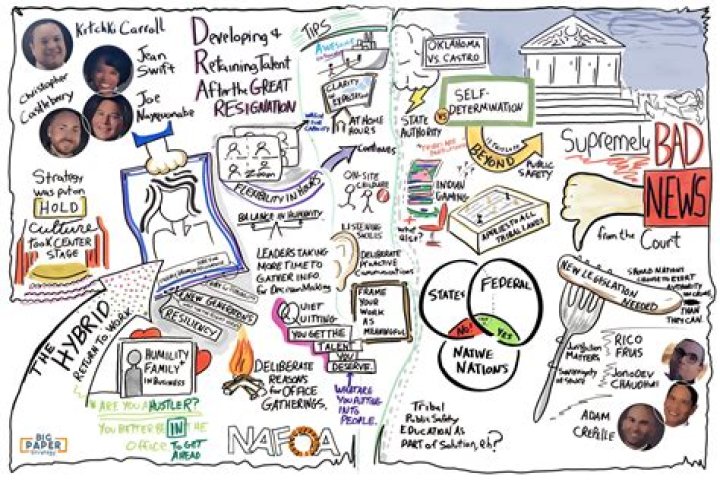 Kitcki Carroll
Jean
Swift
Christopher
Castleberry
Joe
Nayquonabe
Developing &
Retaining Talent
After the GREAT
RESIGNATION
Strategy
was put on
HOLD
Culture
TOOK CENTER
STAGE
THE HYBRID
RETURN TO WORK
NEW GENERATIONS
RESILIENCY
HUMILITY
FAMILY+
IN BUSINESS
ARE YOU A HUSTLER?
YOU BETTER BE IN THE
OFFICE TO GET
AHEAD
BIG
PAPER
Strategy
Zoom
FLEXIBILITY IN HOURS
BALANCE IN HUMANITY
LEADERS TAKING
MORE TIME TO
GATHER INFO.
for Decision Making
QUIET
QUITTING
YOU GET THE
TALENT
YOU
DESERVE.
DELIBERATE
REASONS
for OFFICE
GATHERINGS.
WHAT ARE YOU PUTTING
INTO
PEOPLE.
NAFOA
TIPS
CLARITY
of EXPECTATION
AT HOME
HOURS
Continues
ON-SITE
CHILDCARE
LISTENING
SKILLS
DELIBERATE
PROACTIVE
Communications
FRAME
YOUR
WORK
AS
MEANINGFUL
OKLAHOMA
VS. CASTRO
STATE
AUTHORITY
VS
SELF-
DETERMINATION
BEYOND
PUBLIC
SAFETY
INDIAN
GAMING
+ what
else?
APPLIES TO ALL
TRIBAL LANDS
SUPREMELY BAD
NEWS
from the Court
STATES
FEDERAL
NO!
YES
NATIVE
NATIONS
NEW LEGISLATION
NEEDED
THAN
THEY CAN.
Jurisdiction
MATTERS
RICO
FRIAS
JonoDev
CHAUDHURI
ADAM
CREPELLE
Tribal
Public Safety
EDUCATION AS
PART of Solution, Eh?